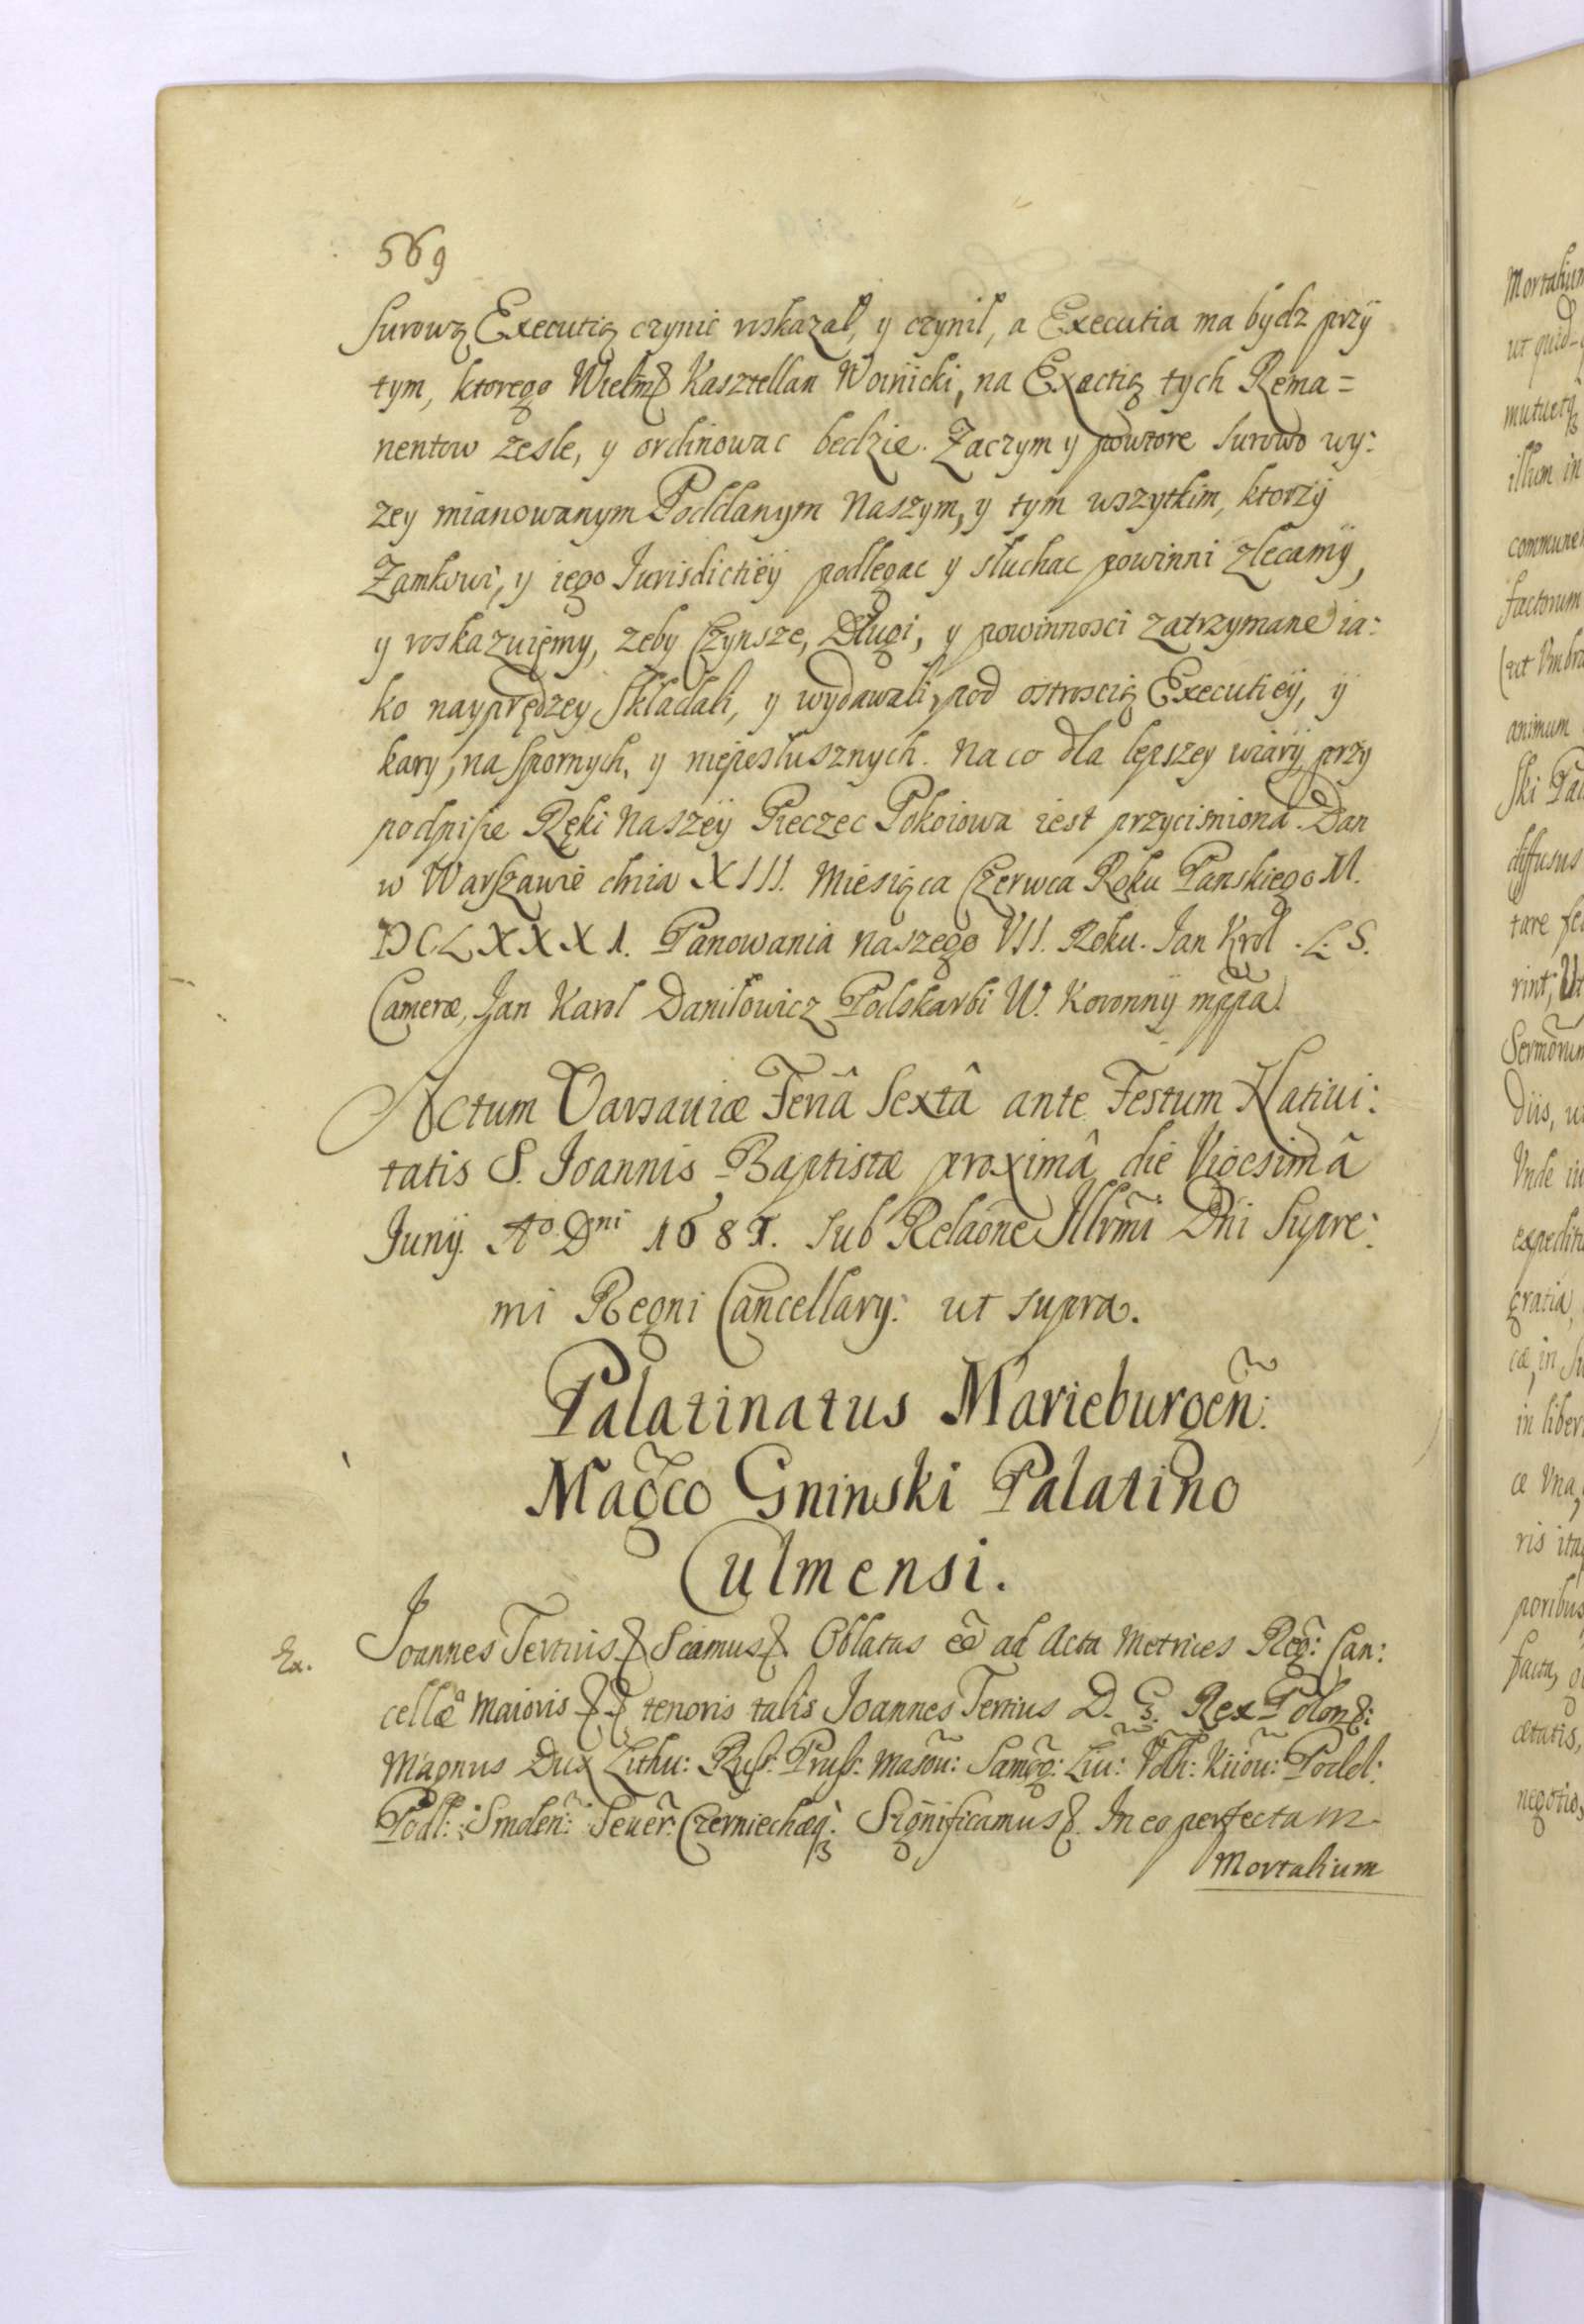 569
surową Executią czynic roskazał, y czynił, a Executia ma bydz przÿ
tym, ktorego Wielm Kasztellan Woinicki, na Exactią tych Rema=
nentow zesle, y ordinowac bedzie. Zaczym y powtore surowo wy:
zey mianowanym Poddanym Naszym, y tym wszytkim, ktorzÿ
Zamkowi, y iego Jurisdictiëÿ podlegac y słuchac powinni zlecamÿ,
y roskazuięmy, zeby Czynsze, Długi, y powinnosci zatrzymane ia:
ko nayprędzey składali, y wydawali, pod ostroscią Executieÿ, ÿ
kary, na spornych, y nieposłusznych. Na co dla lepszey wiarÿ, przy
podpisie Ręki Naszëÿ Pieczec Pokoiowa iest przycisniona. Dan
w Warszawie dnia XIII. Miesiąca Czerwca Roku Panskiego M.
DCLXXXI. Panowania naszego VII. Roku. Jan Krol. L. S.
Cameræ, Jan Karol Daniłowicz Podskarbi W. Koronnÿ mppa.
Actum Varsaviæ Feriâ Sextâ ante Festum Nativi:
tatis S. Joannis Baptistæ proximâ die Vigesimâ
Junÿ. Aº Dni 1681. Sub Relaõne Illrmi Dni Supre:
mi Regni Cancellarÿ: ut supra.
Palatinatus Marieburgeñ:
Magco Gninski Palatino
Culmensi.
Ex. Joannes Tertius Scamus Oblatas eẽ ad Acta Metrices Reg: Can:
cellæ Maioris tenoris talis Joannes Tertius D. G. Rex Polon:
Magnus Dux Lithu: Russ: Pruss: Masou: Samog: Liu: Volh: Kiiou: Podol:
Podl: Smolen: Seuer: Czerniechoq: Significamus. In ea perfectam
Mortalium